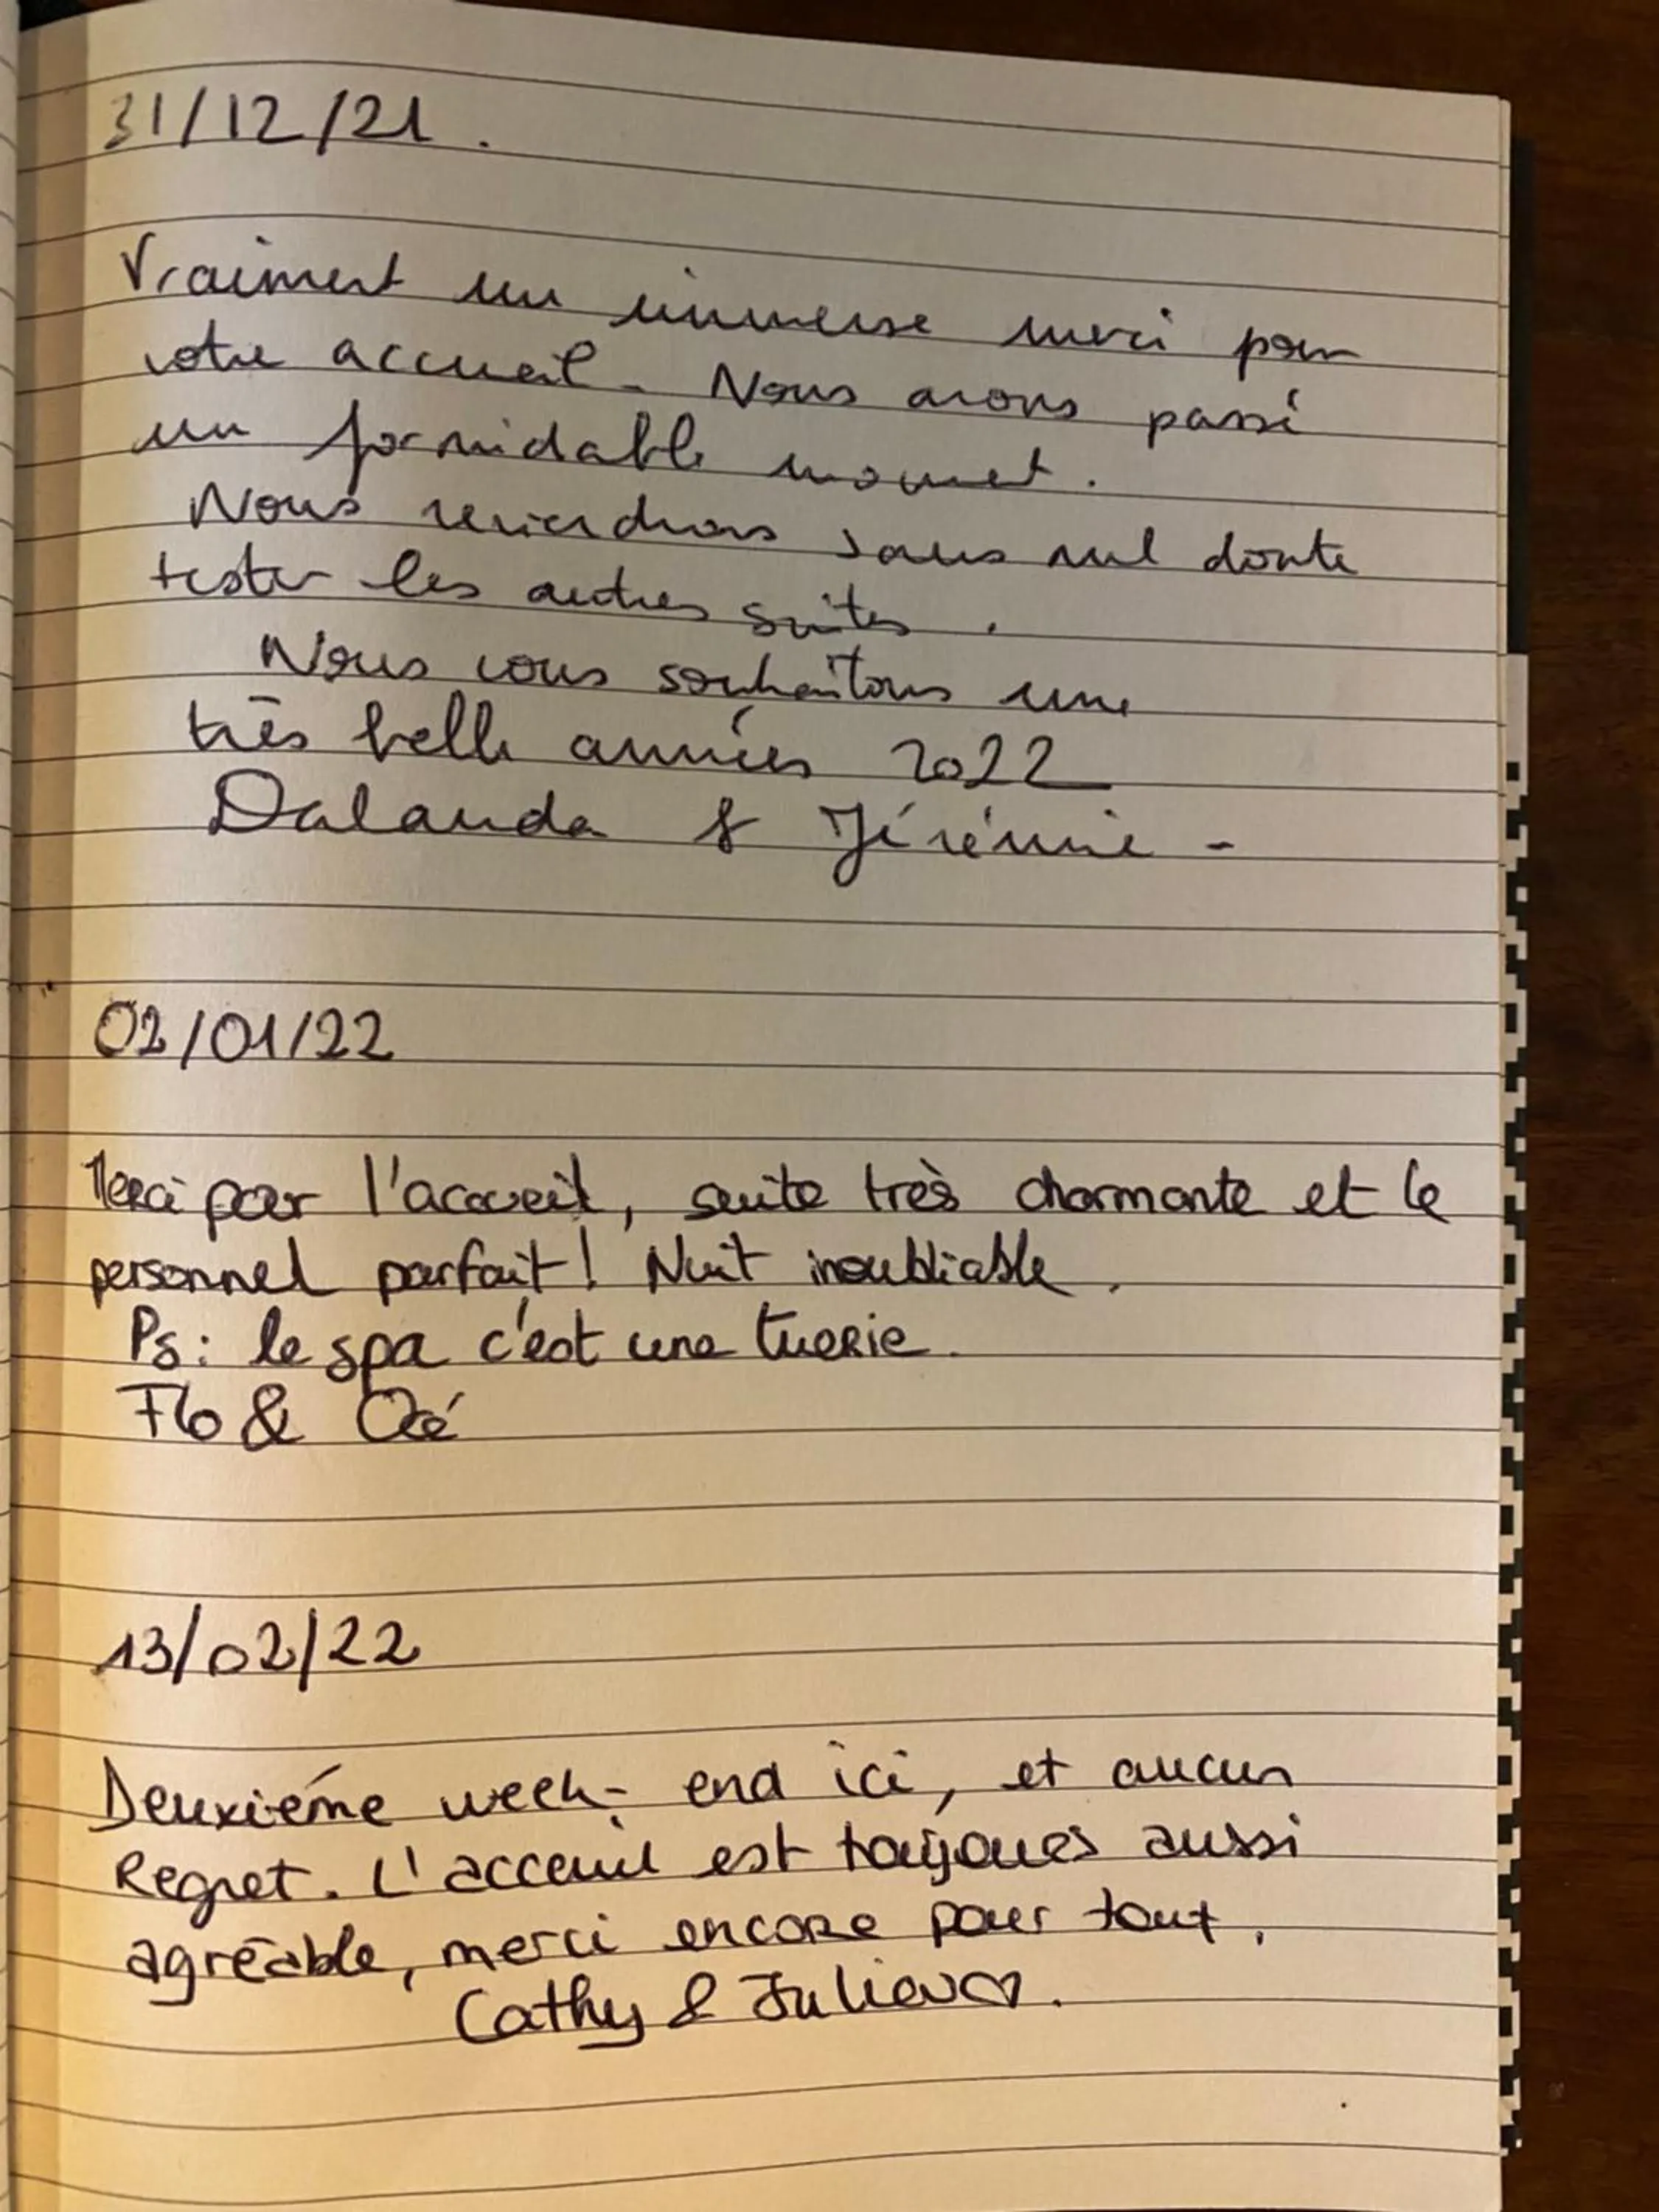 31/12/21.
Vraiment un immense merci pour
votre accueil. Nous avons passé
un formidable moment.
Nous reviendrons sans nul doute
tester les autres suites.
Nous vous souhaitons une
très belle années 2022
Dalanda & Jérémie -
02/01/22
Merci pour l'accueil, suite très charmante et le
personnel parfait! Nuit inoubliable.
Ps: le spa c'est une tuerie.
Flo & Océ
13/02/22
Deuxiéme week-end ici, et aucun
Regret. L'acceuil est toujours aussi
agréable, merci encore pour tout.
Cathy & Julien ♡.